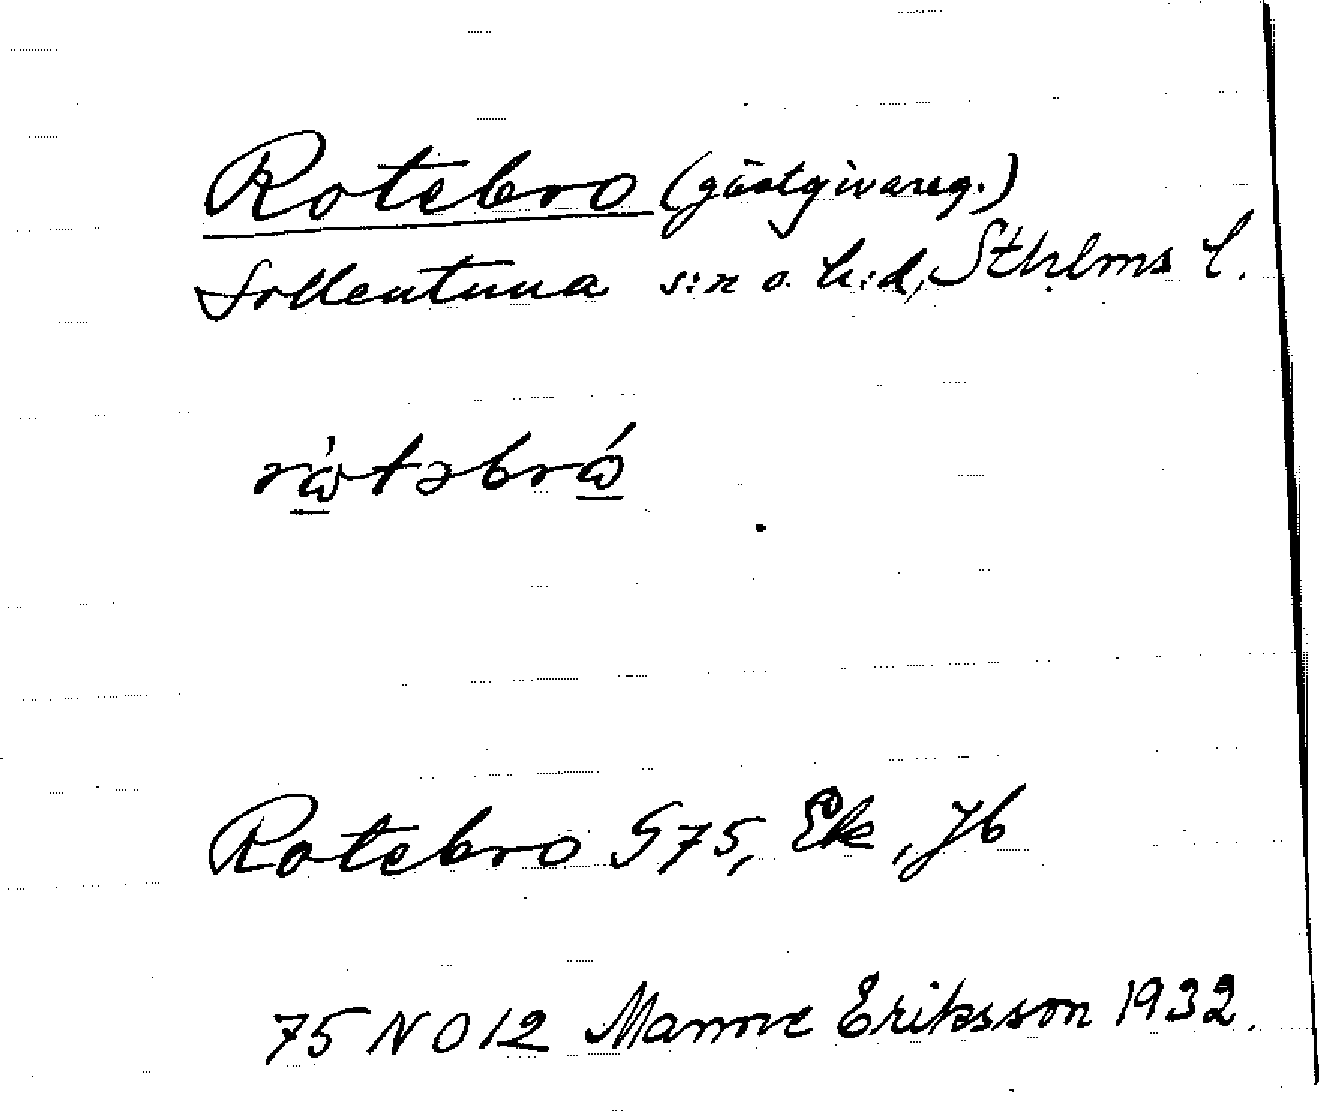 Rotebro (gästgivareg.)
Sollentuna s:n o. h:d, Sthlms l.
rὼ̲təbrώ̲
Rotebro G75, Ek, Jb
75 NO 12 Manne Eriksson 1932.